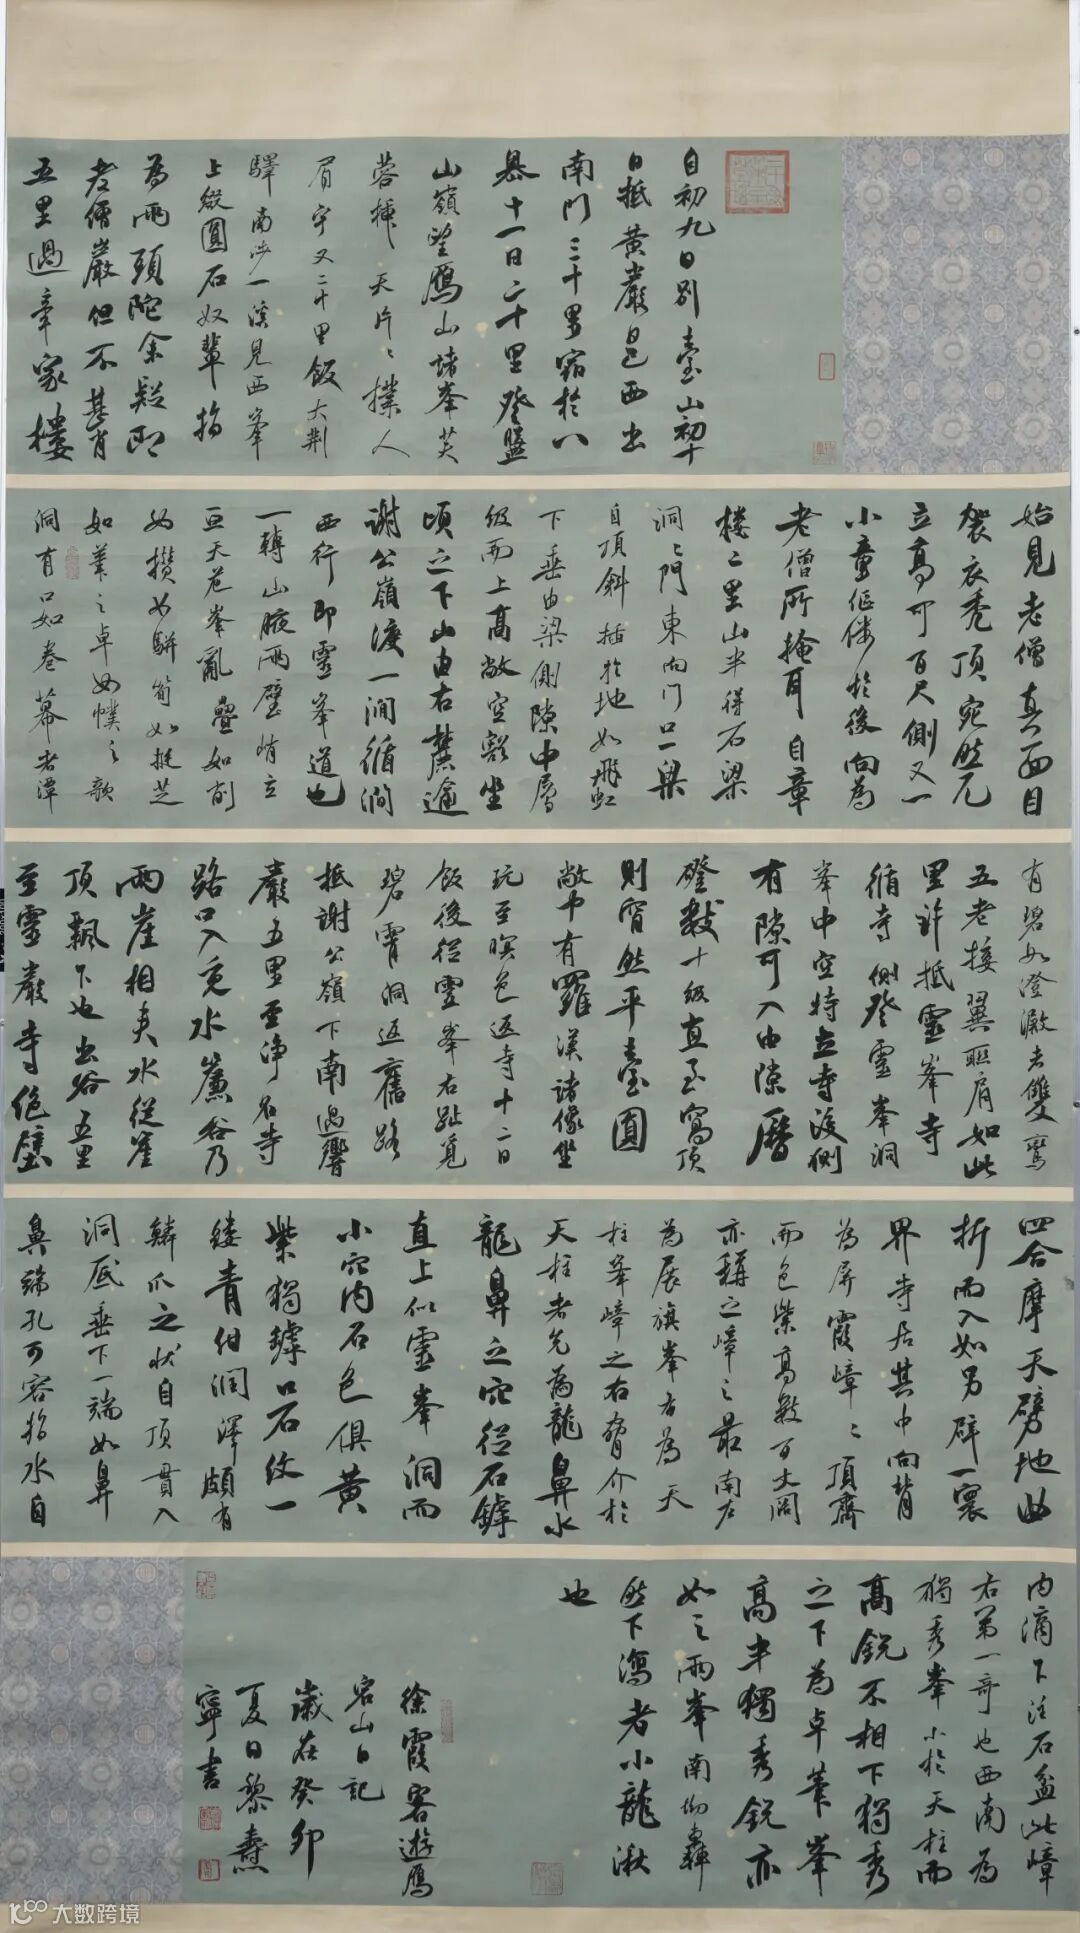 自初九日別臺山初十
日抵黃巖日已西出
南門三十里宿於八
嶴十一日二十里登盤
山嶺望鴈山諸峯芙
蓉插天片〻撲人
眉宇又二十里飯大荆
驛南涉一溪見西峯
上綴圓石奴輩指
為兩頭陀余疑即
老僧巖但不甚肖
五里過章家樓
始見老僧真面目
袈衣禿頂宛然兀
立高可百尺側又一
小童傴僂於後向為
老僧所掩耳自章
樓二里山半得石梁
洞〻門東向門口一梁
自頂斜插於地如飛虹
下垂由梁側隙中層
級而上高敞空豁坐
頃之下山由右麓逾
謝公嶺渡一澗循澗
西行即靈峯道也
一轉山腋兩壁峭立
亘天危峯亂疊如削
如攢如駢筍如挺芝
如筆之卓如幞之欹
洞有口如卷幕者潭
有碧如澄澱者雙鸞
五老接翼聯肩如此
里許抵靈峯寺
循寺側登靈峯洞
峯中空特立寺後側
有隙可入由隙曆
磴數十級直至窩頂
則窅然平臺圓
敞中有羅漢諸像坐
玩至暝色返寺十二日
飯後從靈峯右趾覓
碧霄洞返舊路
抵謝公嶺下南過響
巖五里至淨名寺
路口入覓水簾谷乃
兩崖相夾水從崖
頂飄下也出谷五里
至靈巖寺絕壁
四合摩天劈地曲
折而入如另闢一寰
界寺居其中南向背
為屏霞嶂〻頂齊
而色紫高數百丈闊
亦稱之嶂之最南左
為展旗峯右為天
柱峯嶂之右脅介於
天柱者先為龍鼻水
龍鼻之穴從石罅
直上似靈峯洞而
小穴內石色俱黃
紫獨罅口石紋一
縷青紺潤澤頗有
鱗爪之狀自頂貫入
洞底垂下一端如鼻
鼻端孔可容指水自
內滴下注石盆此嶂
右第一奇也西南為
獨秀峯小於天柱而
高銳不相下獨秀
之下為卓筆峯
高半獨秀銳亦
如之兩峯南坳轟
然下瀉者小龍湫
也
徐霞客遊鴈
宕山日記
歲在癸卯
夏日黎燾
寧書
大数跨境